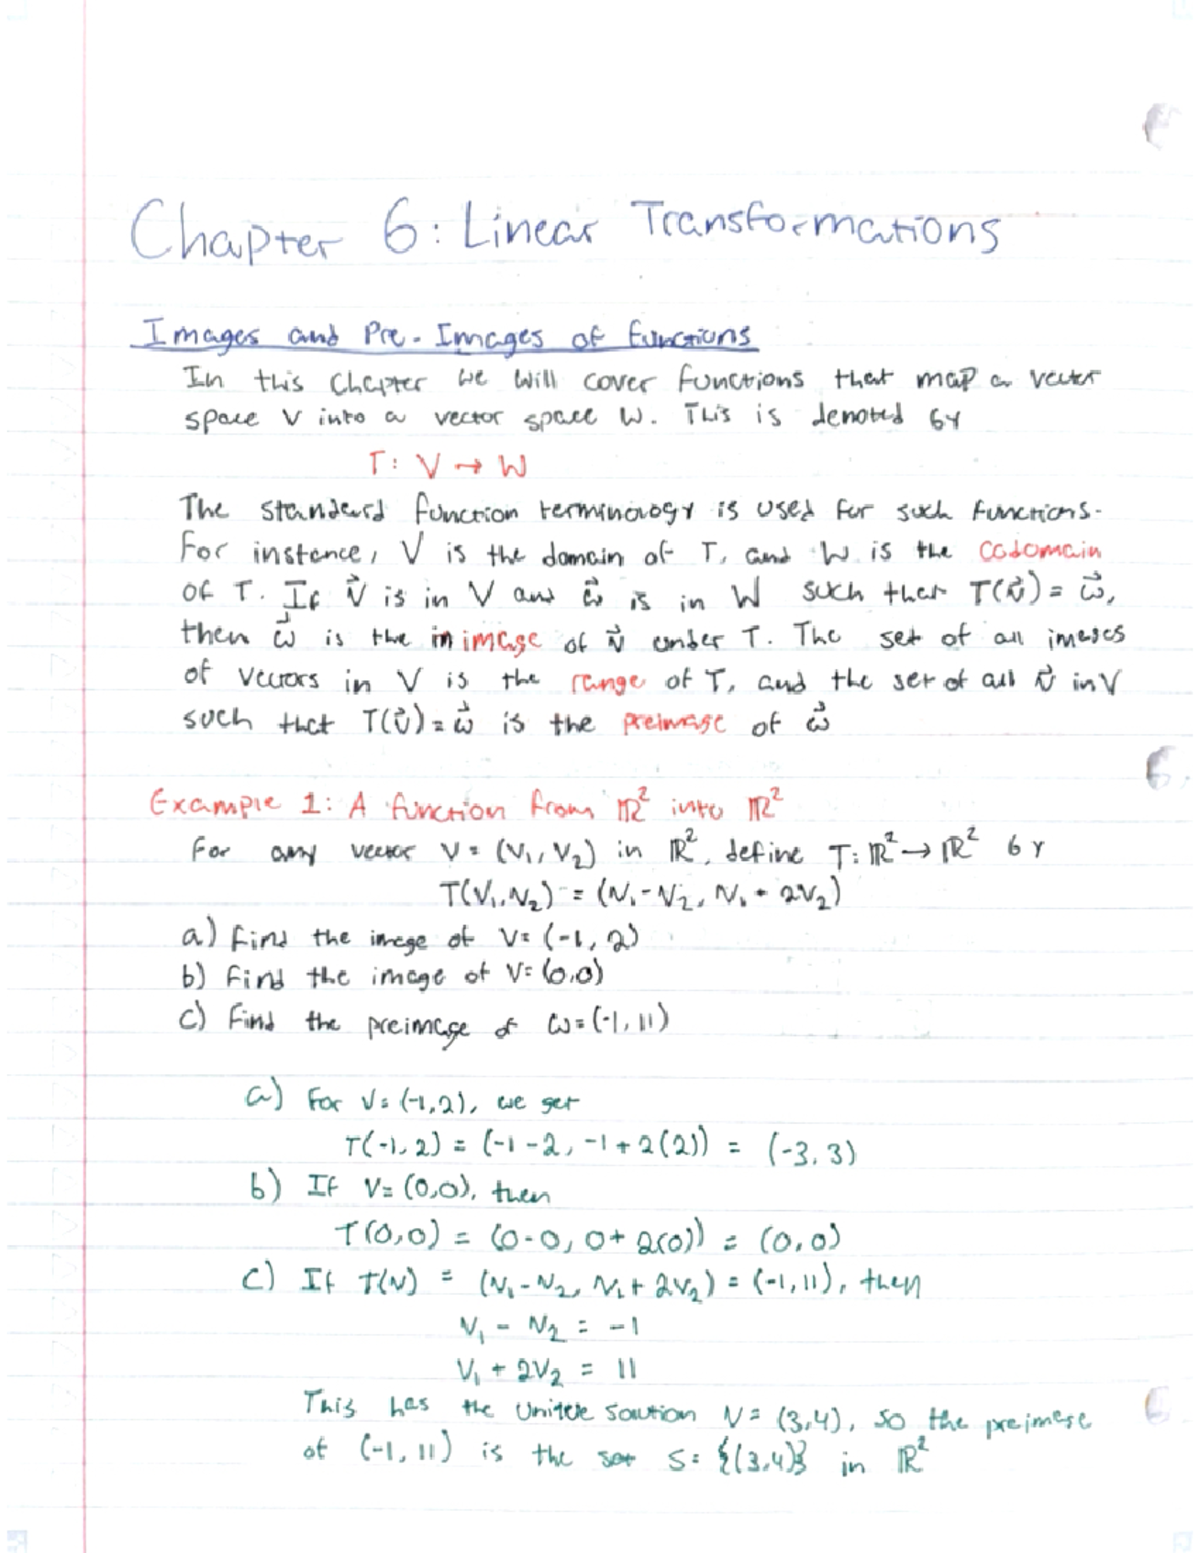 Chapter 6: Linear Transformations
Images and Pre-Images of functions
In this Chapter we will cover functions that map a vector
space V into a vector space W. This is denoted by
T: V → W
The standard function terminology is used for such functions.
For instance, V is the domain of T, and W is the codomain
of T. If v⃗ is in V and w⃗ is in W such that T(v⃗) = w⃗,
then w⃗ is the image of v⃗ under T. The set of all images
of vectors in V is the range of T, and the set of all v⃗ in V
such that T(v⃗) = w⃗ is the preimage of w⃗
Example 1: A function from ℝ² into ℝ²
For any vector V = (V₁, V₂) in ℝ², define T: ℝ² → ℝ² by
T(V₁, V₂) = (V₁ - V₂, V₁ + 2V₂)
a) Find the image of V = (-1, 2)
b) Find the image of V = (0,0)
c) Find the preimage of W = (-1, 11)
a) For V = (-1,2), we get
T(-1, 2) = (-1 - 2, -1 + 2(2)) = (-3, 3)
b) If V = (0,0), then
T(0,0) = (0-0, 0 + 2(0)) = (0,0)
c) If T(V) = (V₁ - V₂, V₁ + 2V₂) = (-1, 11), then
V₁ - V₂ = -1
V₁ + 2V₂ = 11
This has the unique solution V = (3,4), so the preimage
of (-1, 11) is the set S = {(3,4)} in ℝ²